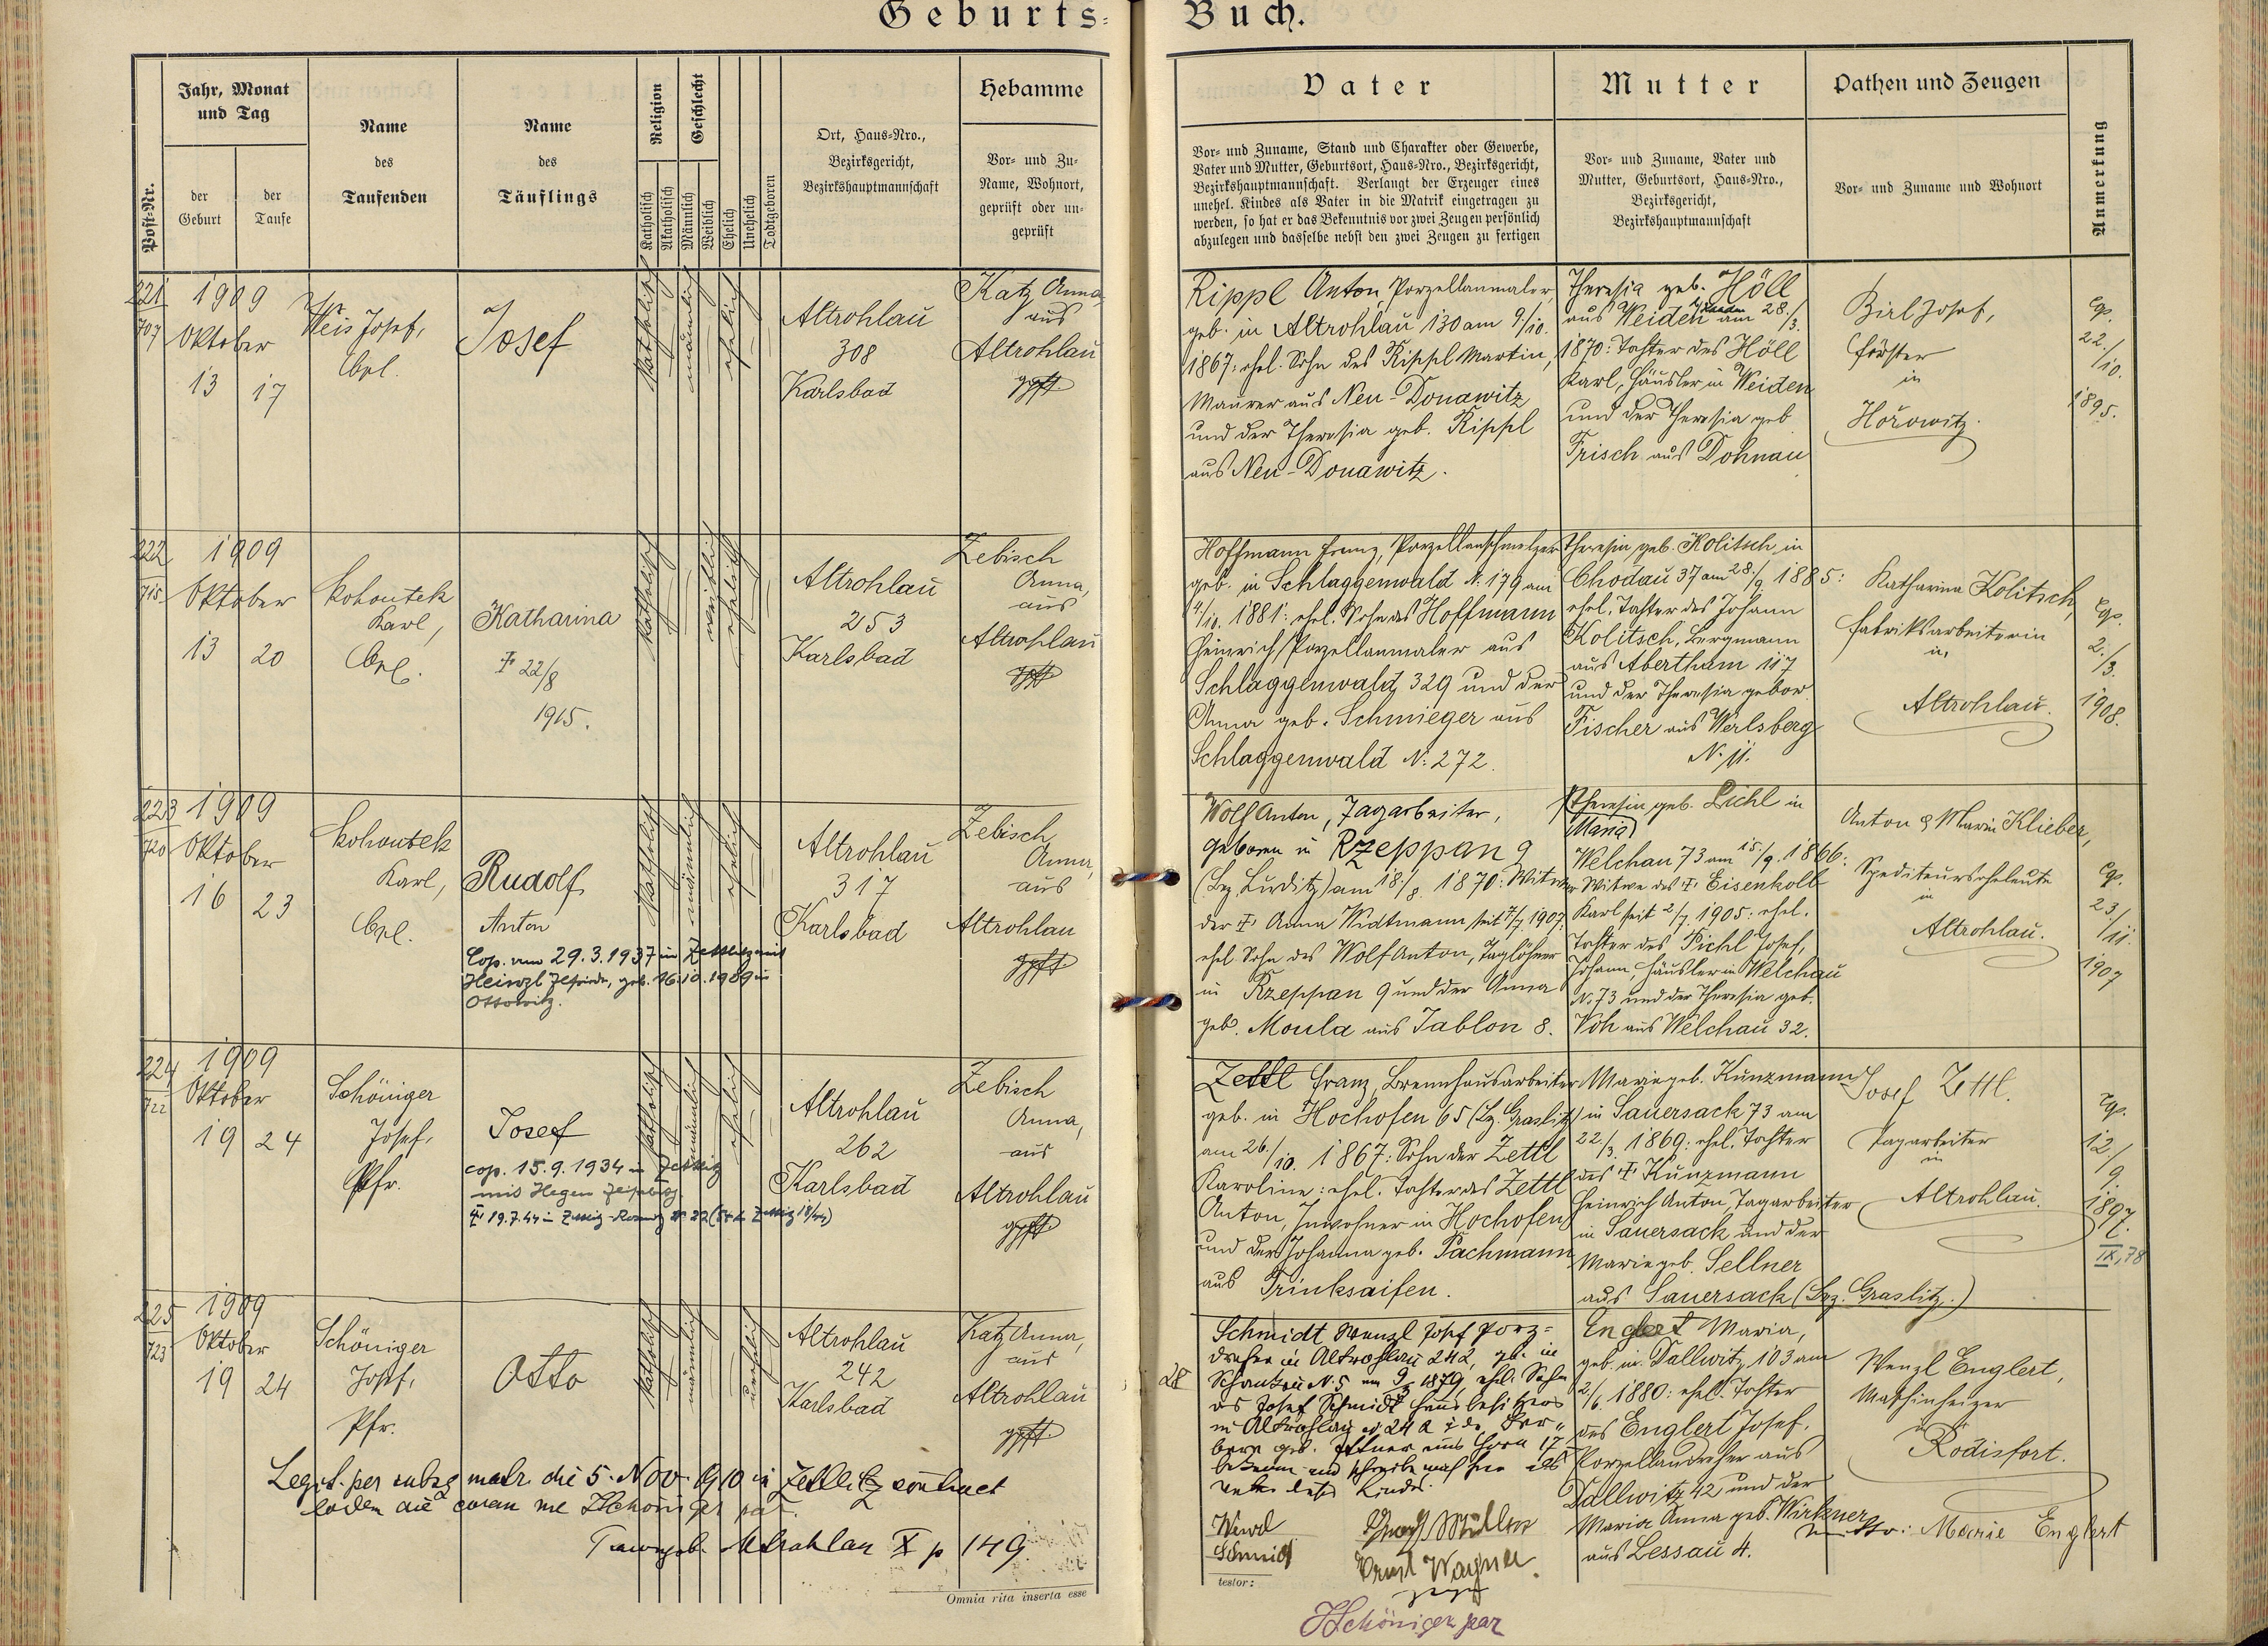 Geburts-Buch.
Post-Nr.
Jahr, Monat
und Tag
der
Geburt
der
Taufe
Name
des
Taufenden
Name
des
Täuflings
Religion
Katholisch
Akatholisch
Geschlecht
Männlich
Weiblich
Ehelich
Unehelich
Todtgeboren
Ort, Haus-Nro.,
Bezirksgericht,
Bezirkshauptmannschaft
Hebamme
Vor- und Zu-
Name, Wohnort,
geprüft oder un-
geprüft
Vater
Vor- und Zuname, Stand und Charakter oder Gewerbe,
Vater und Mutter, Geburtsort, Haus-Nro., Bezirksgericht,
Bezirkshauptmannschaft. Verlangt der Erzeuger eines
unehel. Kindes als Vater in die Matrik eingetragen zu
werden, so hat er das Bekenntnis vor zwei Zeugen persönlich
abzulegen und dasselbe nebst den zwei Zeugen zu fertigen
Mutter
Vor- und Zuname, Vater und
Mutter, Geburtsort, Haus-Nro.,
Bezirksgericht,
Bezirkshauptmannschaft
Pathen und Zeugen
Vor- und Zuname und Wohnort
Anmerkung
221
707
1909
Oktober
13 17
Weis Josef,
Cpl.
Josef
katholisch
männlich
ehelich
Altrohlau
308
Karlsbad
Katz Anna
aus
Altrohlau
gpft
Rippl Anton, Porzellanmaler,
geb. in Altrohlau 130 am 9./10.
1867: ehel. Sohn des Rippl Martin,
Maurer aus Neu-Donawitz
und der Theresia geb. Rippl
aus Neu-Donawitz.
Theresia geb. Höll
aus Weiden am 28./3.
1870: Tochter des Höll
Karl, Häusler in Weiden
und der Theresia geb
Frisch aus Dohnau
Birl Josef,
Förster
in
Hořowitz.
cop.
22./10.
1895.
222
715
1909
Oktober
13 20
Kohoutek
Karl,
Cpl.
Katharina
† 22/8
1915.
katholisch
weiblich
ehelich
Altrohlau
253
Karlsbad
Zebisch
Anna,
aus
Altrohlau
gpft
Hoffmann Franz, Porzellanschmelzer
geb. in Schlaggenwald N. 179 am
4./10. 1881: ehel. Sohn des Hoffmann
Heinrich, Porzellanmaler aus
Schlaggenwald 329 und der
Anna geb. Schmieger aus
Schlaggenwald N. 272.
Theresia geb. Kolitsch in
Chodau 37 am 28./9 1885:
ehel. Tochter des Johann
Kolitsch, Bergmann
aus Abertham 117
und der Theresia gebor.
Fischer aus Werlsberg
N. 11.
Katharina Kolitsch,
Fabriksarbeiterin
in
Altrohlau.
cop.
2./3.
1908.
223
720
1909
Oktober
16 23
Kohoutek
Karl,
Cpl.
Rudolf
Anton
Cop. am 29.3.1937 in Zettlitz mit
geb. 16.10.1909 in
Ottowitz.
katholisch
männlich
ehelich
Altrohlau
317
Karlsbad
Zebisch
Anna,
aus
Altrohlau
gpft
Wolf Anton, Tagarbeiter,
geboren in Rzeppan 9
(Bez. Luditz) am 18./8. 1870: Witwer
der † Anna Widtmann seit 7/7 1907:
ehel. Sohn des Wolf Anton, Taglöhner
in Rzeppan 9 und der Anna
geb. Moula aus Jablon 8.
Theresia geb. Pichl in
(Maria)
Welchau 73 am 15./9. 1866:
Witwe des † Eisenkolb
Karl seit 2/7 1905: ehel.
Tochter des Pichl Josef,
Johann, Häusler in Welchau
N. 73 und der Theresia geb.
Voh aus Welchau 32.
Anton & Marie Klieber,
Spediteurseheleute
in
Altrohlau.
cop.
23./11.
1907
224
722
1909
Oktober
19 24
Schöniger
Josef,
Pfr.
Josef
cop. 15.9.1934 in Zettlitz
mit Hegen
† 19.7.44 in
katholisch
männlich
ehelich
Altrohlau
262
Karlsbad
Zebisch
Anna,
aus
Altrohlau
gpft
Zettl Franz, Brennhausarbeiter
geb. in Hochofen 65 (Bz. Graslitz)
am 26./10. 1867: Sohn der Zettl
Karoline: ehel. Tochter des Zettl
Anton, Inwohner in Hochofen
und der Johanna geb. Pachmann
aus Trinksaifen.
Marie geb. Kunzmann
in Sauersack 73 am
22./3. 1869: ehel. Tochter
des † Kunzmann
Heinrich Anton, Tagarbeiter
in Sauersack und der
Marie geb. Sellner
aus Sauersack (Bz. Graslitz.)
Josef Zettl.
Tagarbeiter
in
Altrohlau.
cop.
12./9.
1897.
IX, 78
225
723
1909
Oktober
19 24
Schöniger
Josef,
Pfr.
Otto
katholisch
männlich
unehelich
Altrohlau
242
Karlsbad
Katz Anna,
aus
Altrohlau
gpft
Legit. per subsq matr. die 5. Nov. 1910 in Zettlitz contract
eodem die coram me JSchöniger par.
Altrohlau X p 149
28
Schmidt Wenzl Josef Porz-
dreher in Altrohlau 242, geb. in
N. 5 am 9/3 1879, ehel. Sohn
des Josef Schmidt Hausbesitzers
in Altrohlau N 242 u. der Bar-
bara geb. aus Horn 17
bekenne und schreibe mich hier als
Vater dieses Kindes.
Wenzl
Schmidt
Josef Müller
Ernst Wagner
Zeugen
testor:
JSchöniger par
Englert Maria,
geb. in Dallwitz 103 am
2./6. 1880: ehel. Tochter
des Englert Josef,
Porzellandreher aus
Dallwitz 42 und der
Maria Anna geb. Wirkner
aus Lessau 4.
Wenzl Englert,
Maschinheizer
in
Rodisfort.
Mutter: Marie Englert
Omnia rita inserta esse